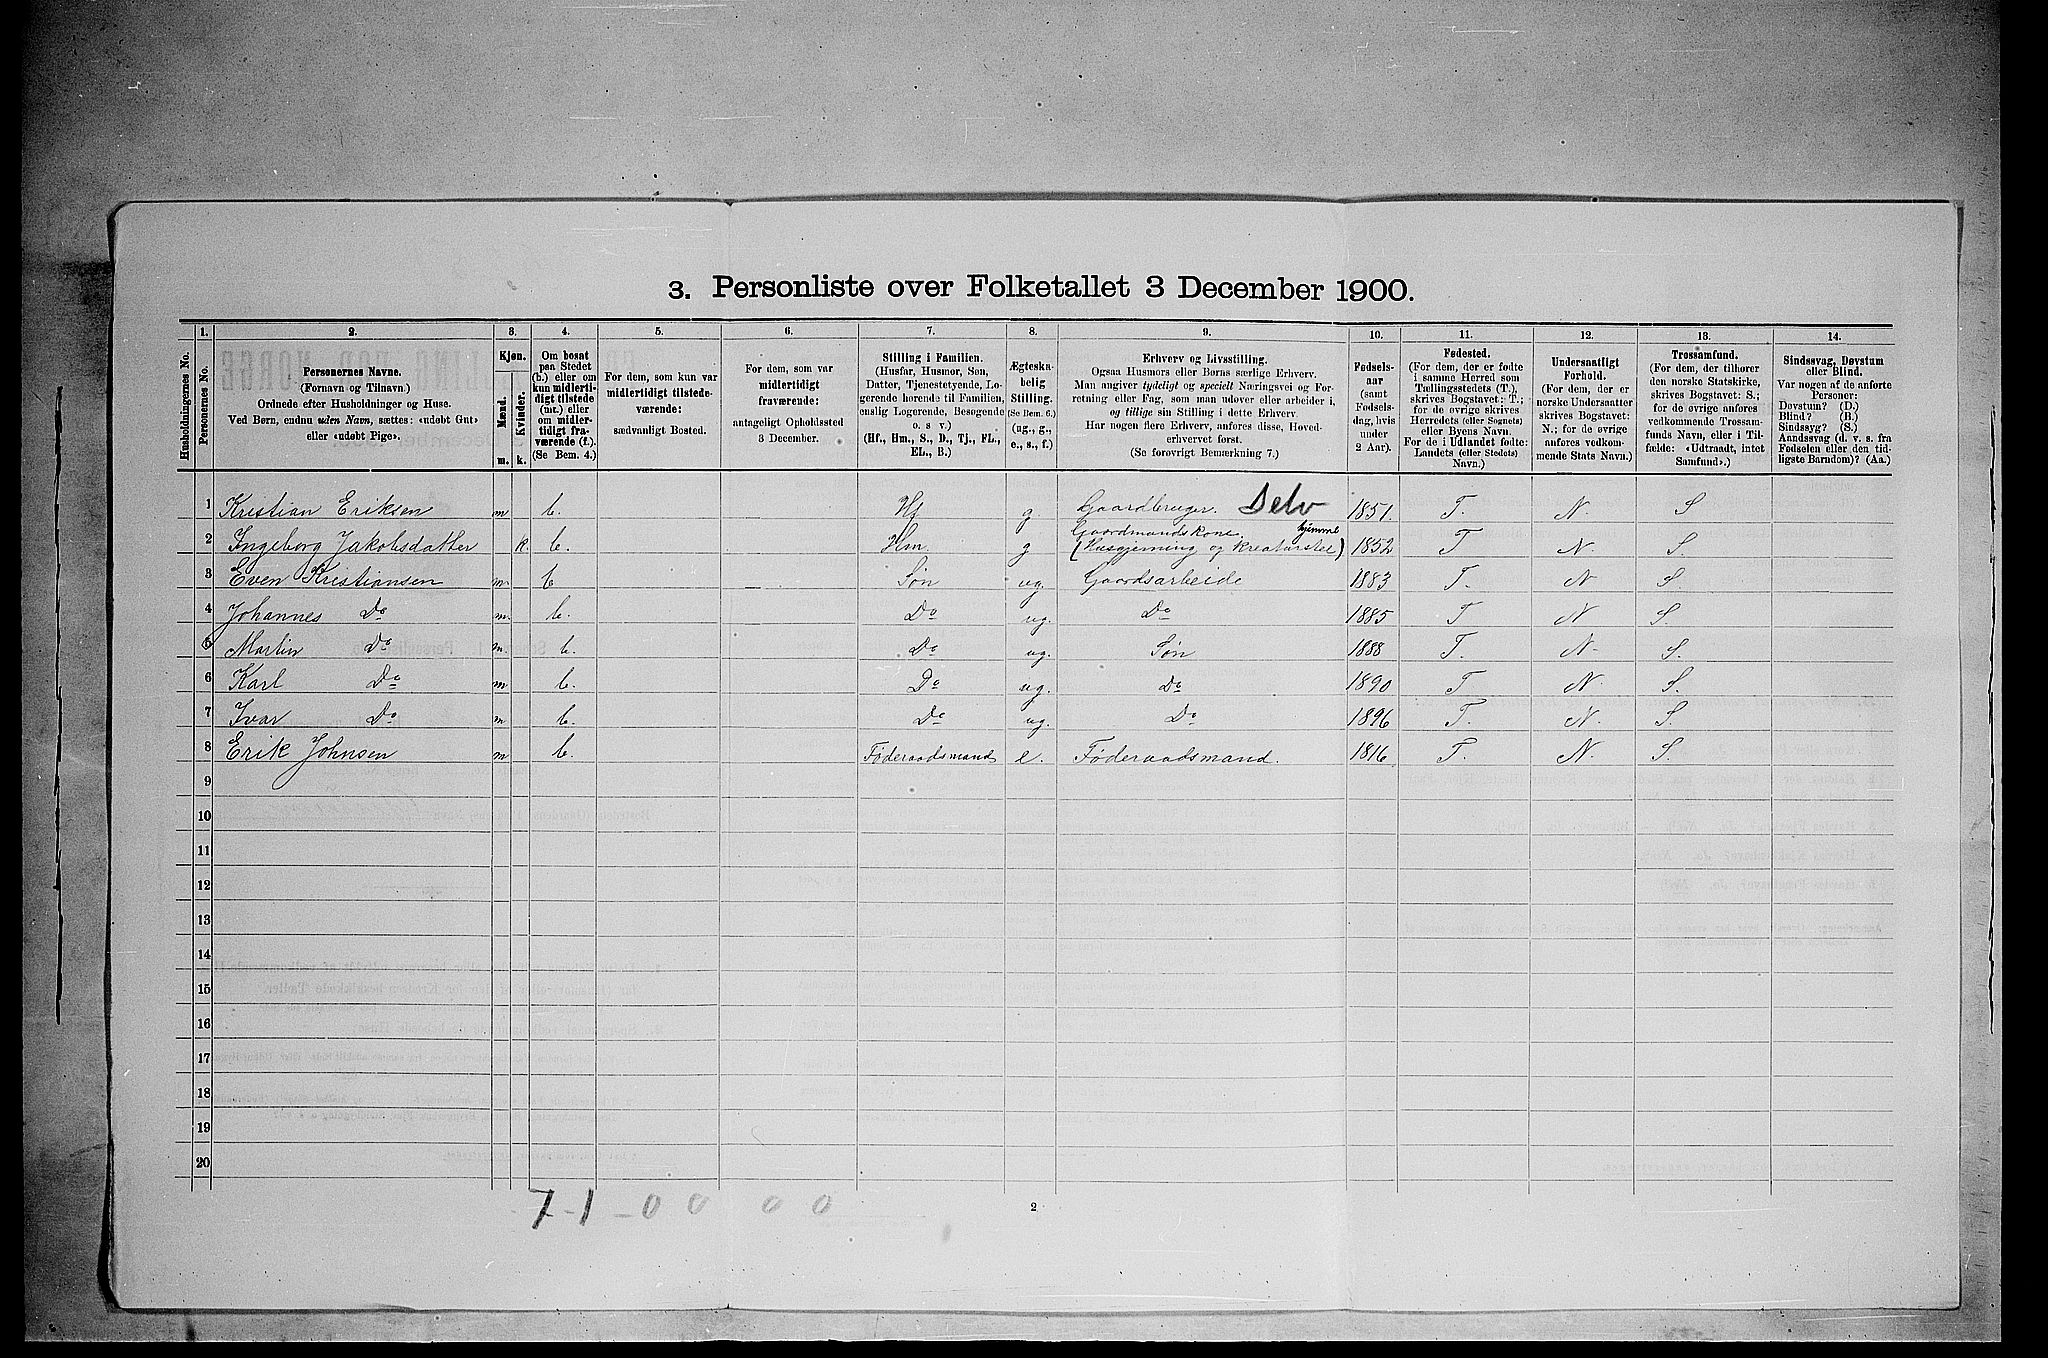 3. Personliste over Folketallet 3 December 1900.
1. 2. 3. 4. 5. 6. 7. 8. 9. 10. 11. 12. 13. 14.
Husholdningernes No.
Personernes No.
Personernes Navne.
(Fornavn og Tilnavn.)
Ordnede efter Husholdninger og Huse.
Ved Børn, endnu uden Navn, sættes: «udøbt Gut»
eller «udøbt Pige».
Kjøn.
Mænd.
Kvinder.
m. k.
Om bosat
paa Stedet
(b.) eller om
kun midlerti-
digt tilstede
(mt.) eller
om midler-
tidigt fra-
værende (f.).
(Se Bem. 4.)
For dem, som kun var
midlertidigt tilstede-
værende:
sædvanligt Bosted.
For dem, som var
midlertidigt
fraværende:
antageligt Opholdssted
3 December.
Stilling i Familien.
(Husfar, Husmor, Søn,
Datter, Tjenestetyende, Lo-
gerende hørende til Familien,
enslig Logerende, Besøgende
o. s. v.)
(Hf., Hm., S., D., Tj., FL.,
EL., B.)
Ægteska-
belig
Stilling.
(Se Bem. 6.)
(ug., g.,
e., s., f.)
Erhverv og Livsstilling.
Ogsaa Husmors eller Børns særlige Erhverv.
Man angiver tydeligt og specielt Næringsvei og For-
retning eller Fag, som man udøver eller arbeider i,
og tillige sin Stilling i dette Erhverv.
Har nogen flere Erhverv, anføres disse, Hoved-
erhvervet først.
(Se forøvrigt Bemærkning 7.)
Fødsels-
aar
(samt
Fødsels-
dag, hvis
under
2 Aar).
Fødested.
(For dem, der er fødte
i samme Herred som
Tællingsstedets (T.),
skrives Bogstavet: T.;
for de øvrige skrives
Herredets (eller Sognets)
eller Byens Navn.
For de i Udlandet fødte:
Landets (eller Stedets)
Navn.)
Undersaatligt
Forhold.
(For dem, der er
norske Undersaatter
skrives Bogstavet:
N.; for de øvrige
anføres vedkom-
mende Stats Navn.)
Trossamfund.
(For dem, der tilhører
den norske Statskirke,
skrives Bogstavet: S.;
for de øvrige anføres
vedkommende Trossam-
funds Navn, eller i Til-
fælde: «Udtraadt, intet
Samfund».)
Sindssvag, Døvstum
eller Blind.
Var nogen af de anførte
Personer:
Døvstum? (D.)
Blind? (B.)
Sindssyg? (S.)
Aandssvag (d. v. s. fra
Fødselen eller den tid-
ligste Barndom)? (Aa.)
1 Kristian Eriksen m b. Hf g Gaardbruger. Selv 1851. T. N. S
2 Ingeborg Jakobsdatter k. b. Hm. g Gaardmandskone. hjemme (Husgjerning og Kreaturstel) 1852 T N. S.
3 Even Kristiansen m b Søn ug. Gaardsarbeide 1883 T. N S.
4 Johannes Do m. b. Do ug. Do 1885 T N S.
5 Martin Do m. b. Do ug. Søn 1888 T. N. S.
6 Karl Do m b. Do ug. Do 1890 T N. S.
7 Ivar Do m b. Do ug. Do 1896 T. N. S.
8 Erik Johnsen m b. Føderaadsmand e. Føderaadsmand. 1816 T. N. S.
9
10
11
12
13
14
15
16
17
18
19
20
7 - 1 - 0 0 0 0
2